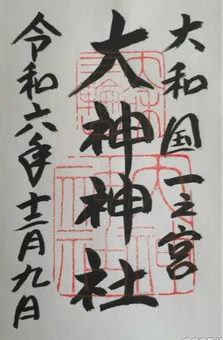 大和国一之宮
大神神社
令和六年十二月九日